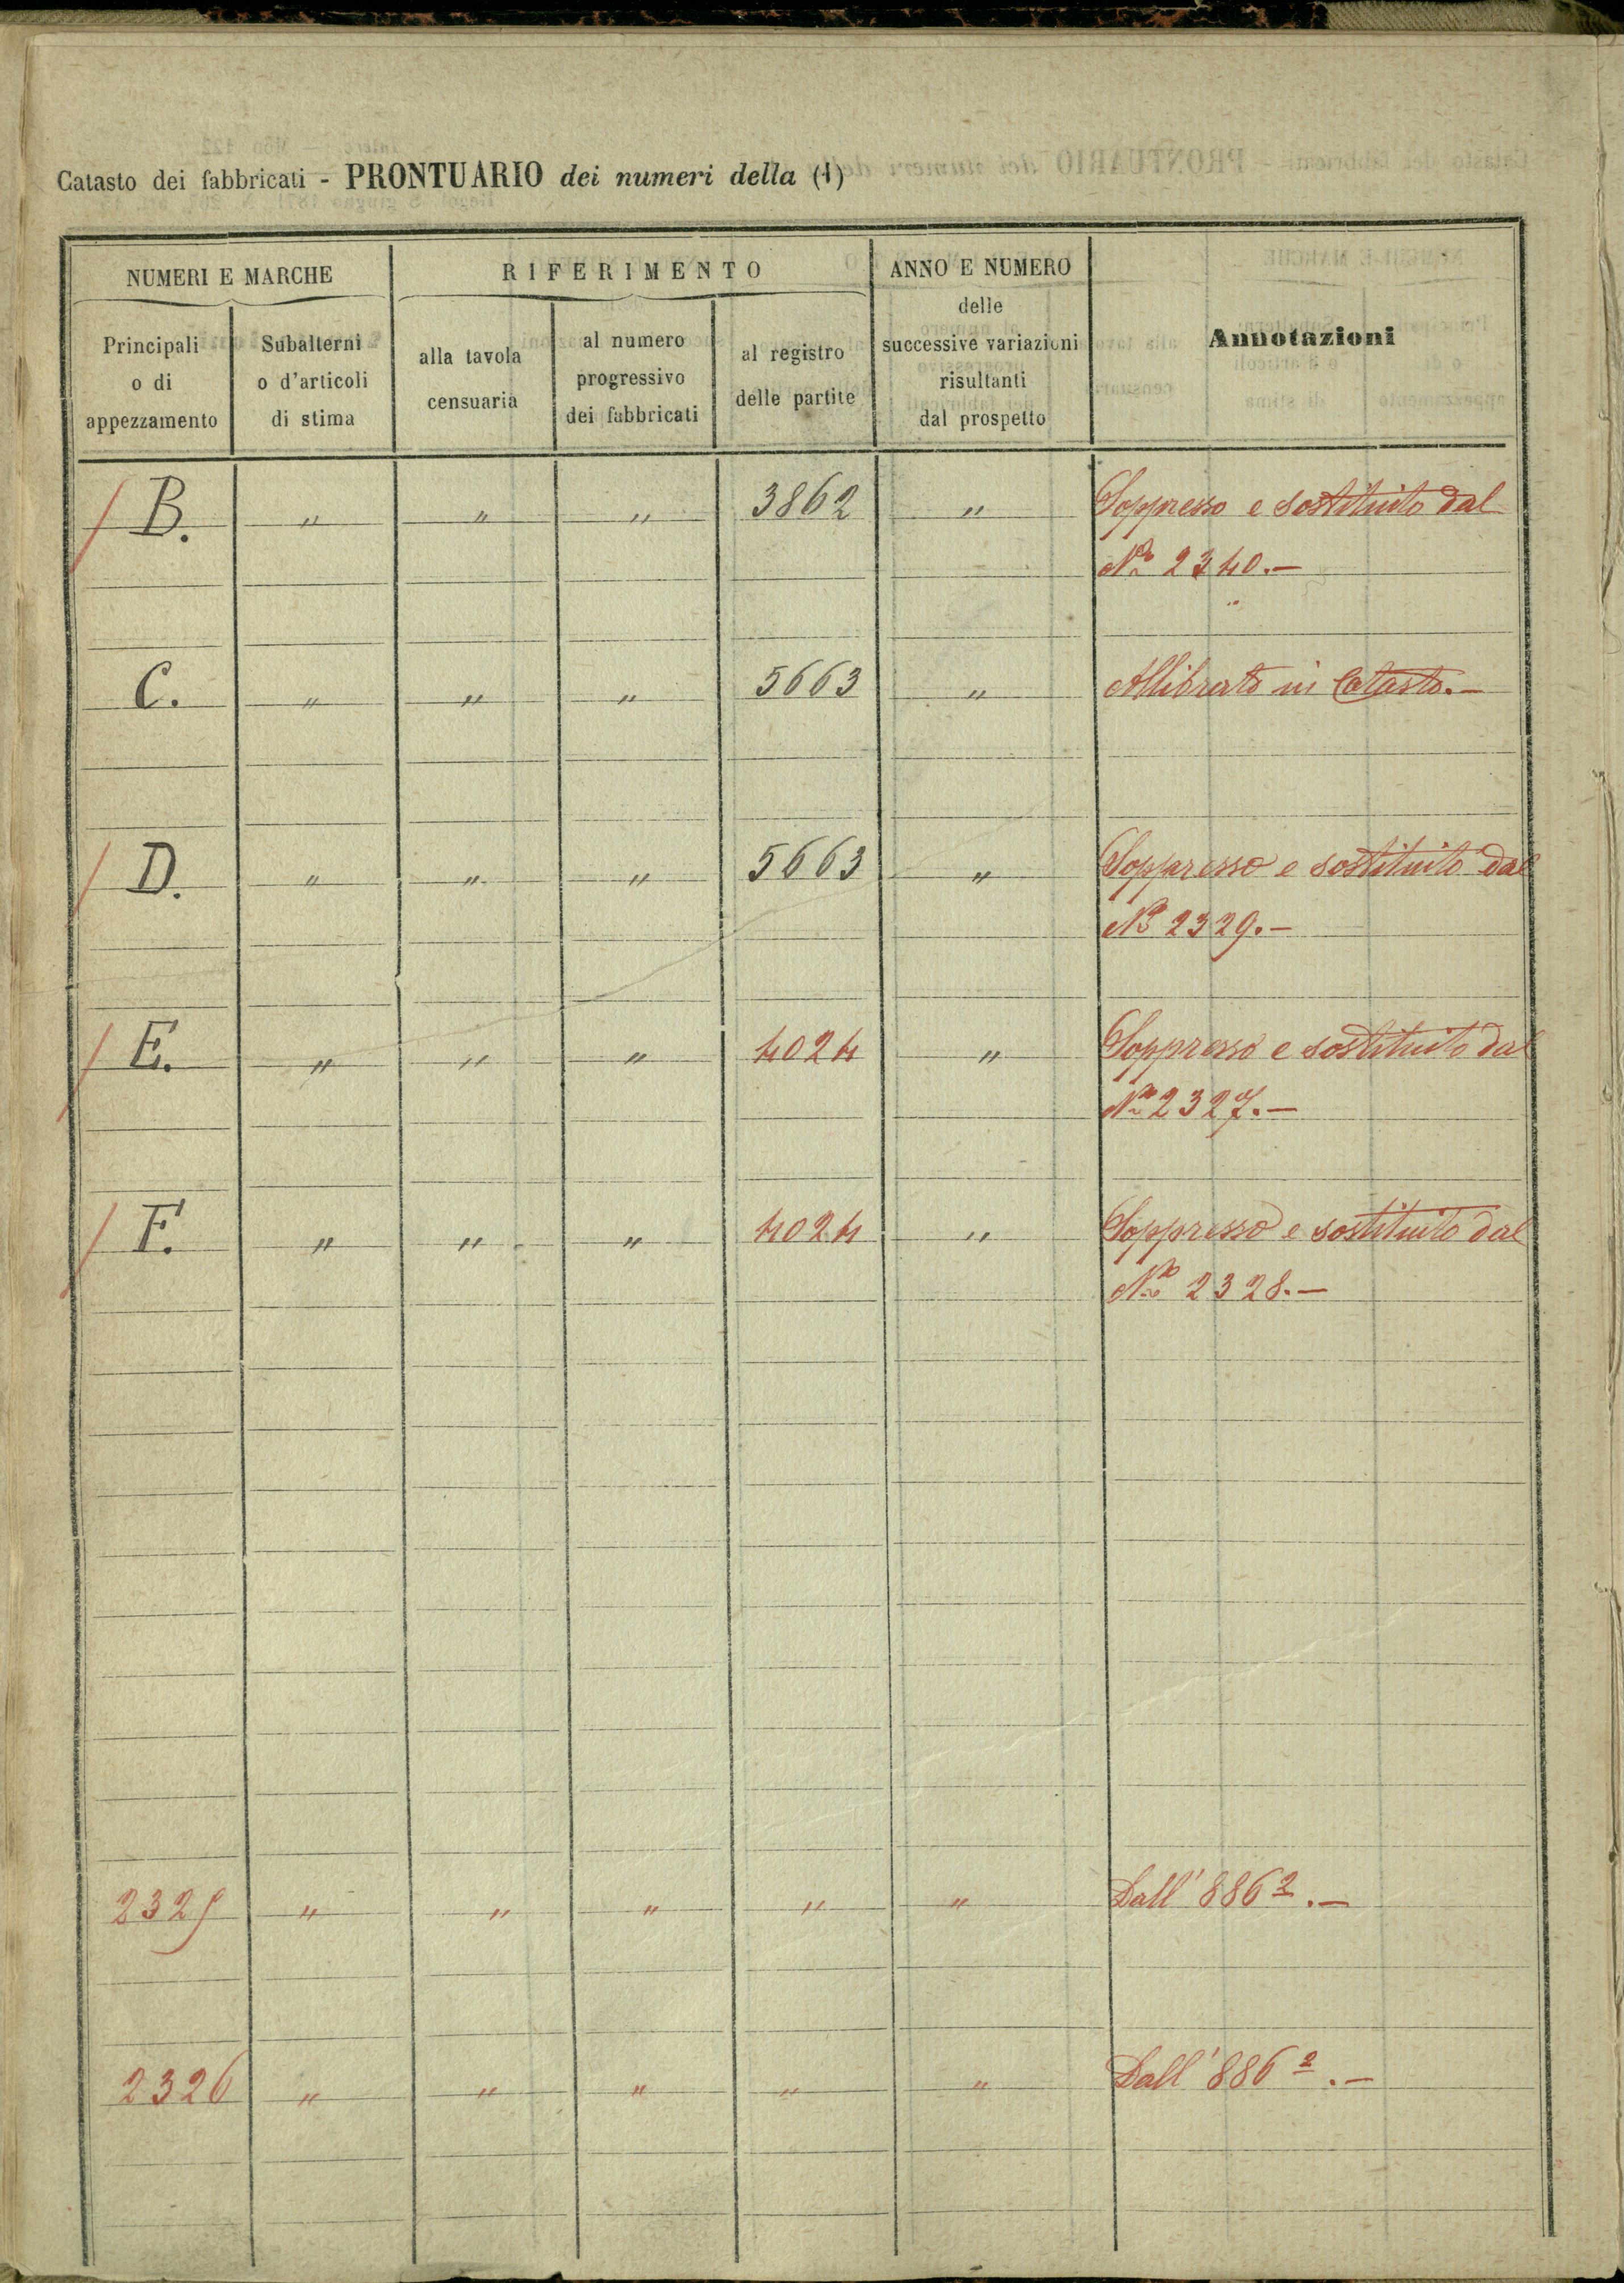 Catasto dei fabbricati - PRONTUARIO dei numeri della (1)
NUMERI E MARCHE
RIFERIMENTO
ANNO E NUMERO
delle
successive variazioni
risultanti
dal prospetto
Annotazioni
Principali
o di
appezzamento
Subalterni
o d'articoli
di stima
alla tavola
censuaria
al numero
progressivo
dei fabbricati
al registro
delle partite
B. " " " 3862 " Soppresso e sostituito dal
No 2340.-
C. " " " 5663 " Allibrato in Catasto.-
D. " " " 5663 " Soppresso e sostituito dal
No 2329.-
E. " " " 4024 " Soppresso e sostituito dal
No 2327.-
F. " " " 4024 " Soppresso e sostituito dal
No 2328.-
2325 " " " " " Dall' 886 2.-
2326 " " " " " Dall' 886 2.-